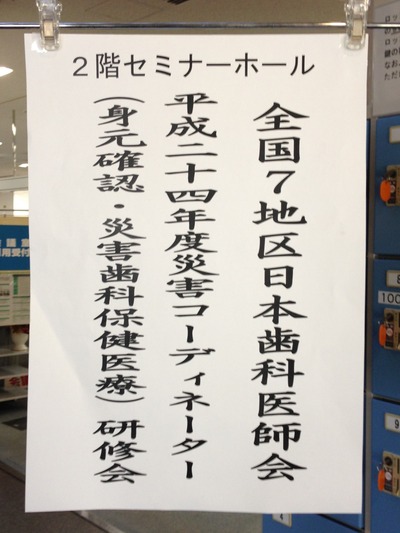 ２階セミナーホール
全国７地区日本歯科医師会
平成二十四年度災害コーディネーター
（身元確認・災害歯科保健医療）研修会
100